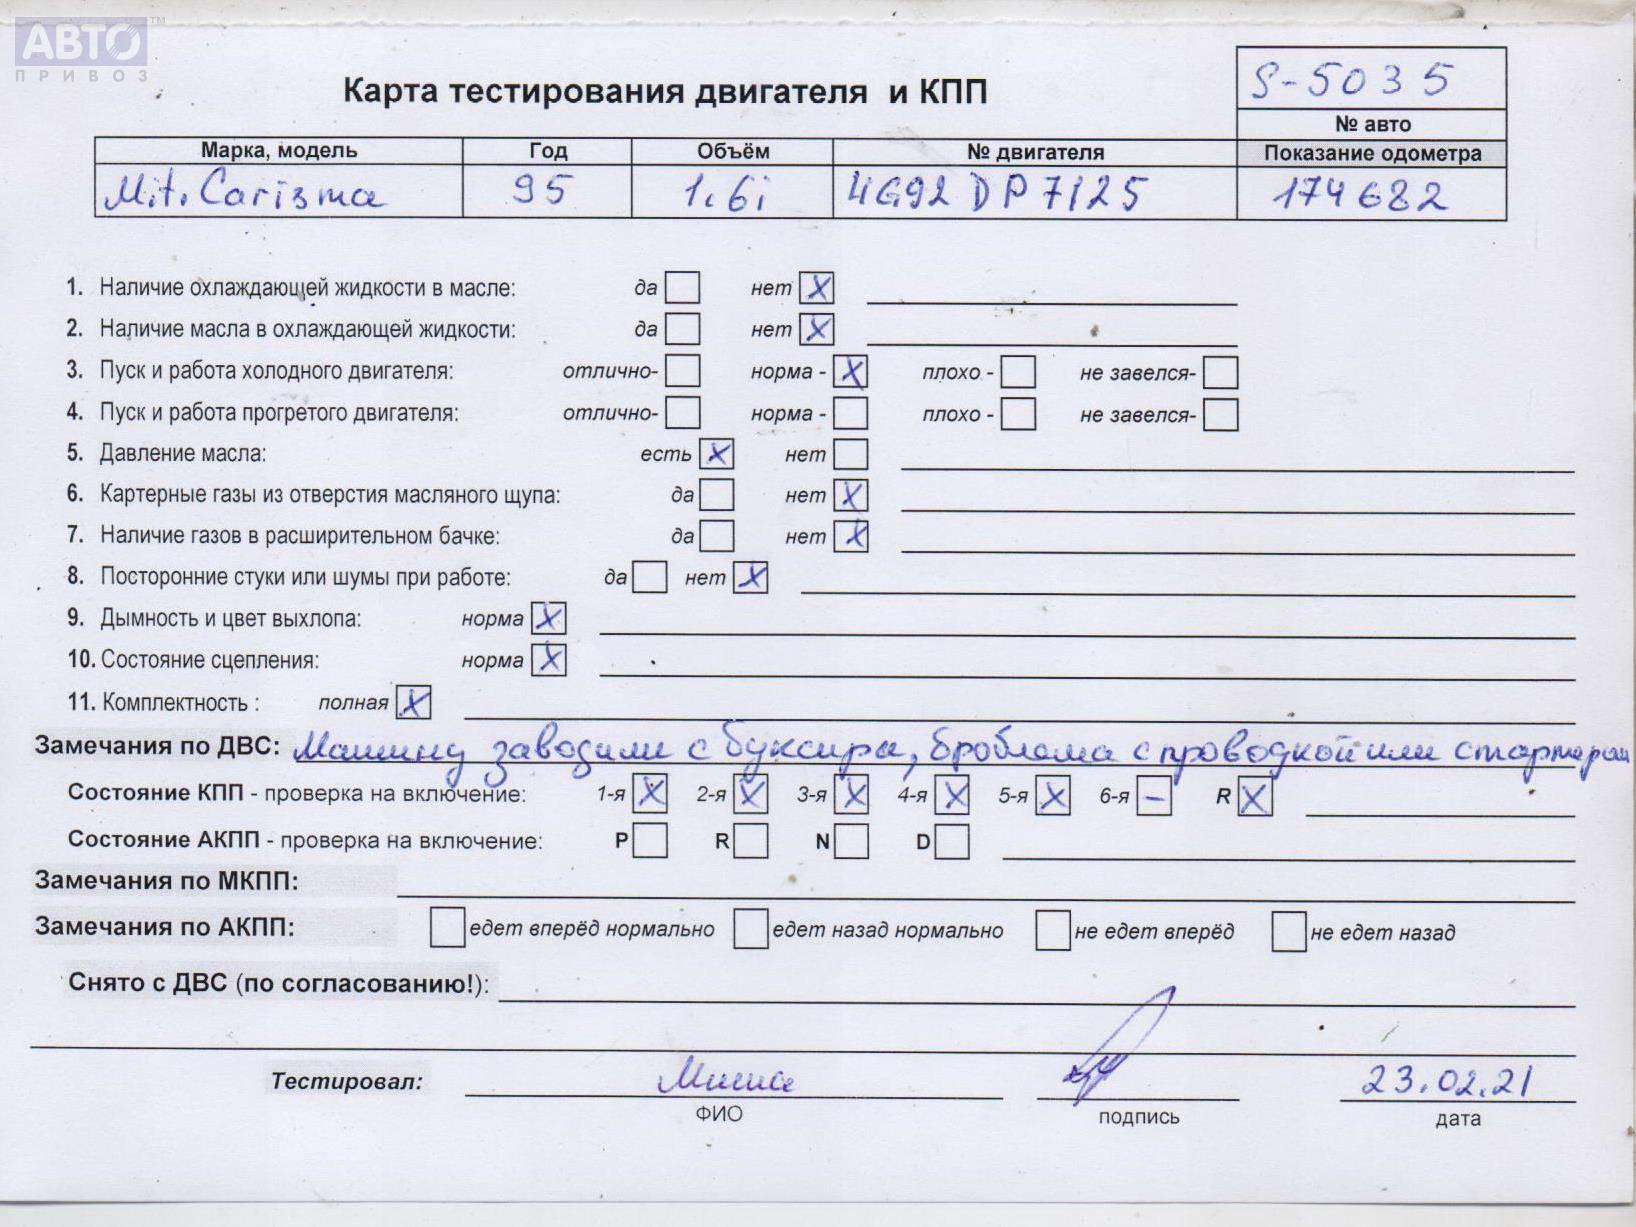 АВТО TM
ПРИВОЗ
Карта тестирования двигателя и КПП
S-5035
№ авто
Марка, модель Год Объём № двигателя Показание одометра
Mit. Carisma 95 1.6i 4G92 DP7125 174682
1. Наличие охлаждающей жидкости в масле: да нет X
2. Наличие масла в охлаждающей жидкости: да нет X
3. Пуск и работа холодного двигателя: отлично- норма - X плохо - не завелся-
4. Пуск и работа прогретого двигателя: отлично- норма - плохо - не завелся-
5. Давление масла: есть X нет
6. Картерные газы из отверстия масляного щупа: да нет X
7. Наличие газов в расширительном бачке: да нет X
8. Посторонние стуки или шумы при работе: да нет X
9. Дымность и цвет выхлопа: норма X
10. Состояние сцепления: норма X
11. Комплектность : полная X
Замечания по ДВС: Машину заводили с буксира, броблема с проводкой или стартером
Состояние КПП - проверка на включение: 1-я X 2-я X 3-я X 4-я X 5-я X 6-я – R X
Состояние АКПП - проверка на включение: P R N D
Замечания по МКПП:
Замечания по АКПП: едет вперёд нормально едет назад нормально не едет вперёд не едет назад
Снято с ДВС (по согласованию!):
Тестировал: Миша 23.02.21
ФИО подпись дата